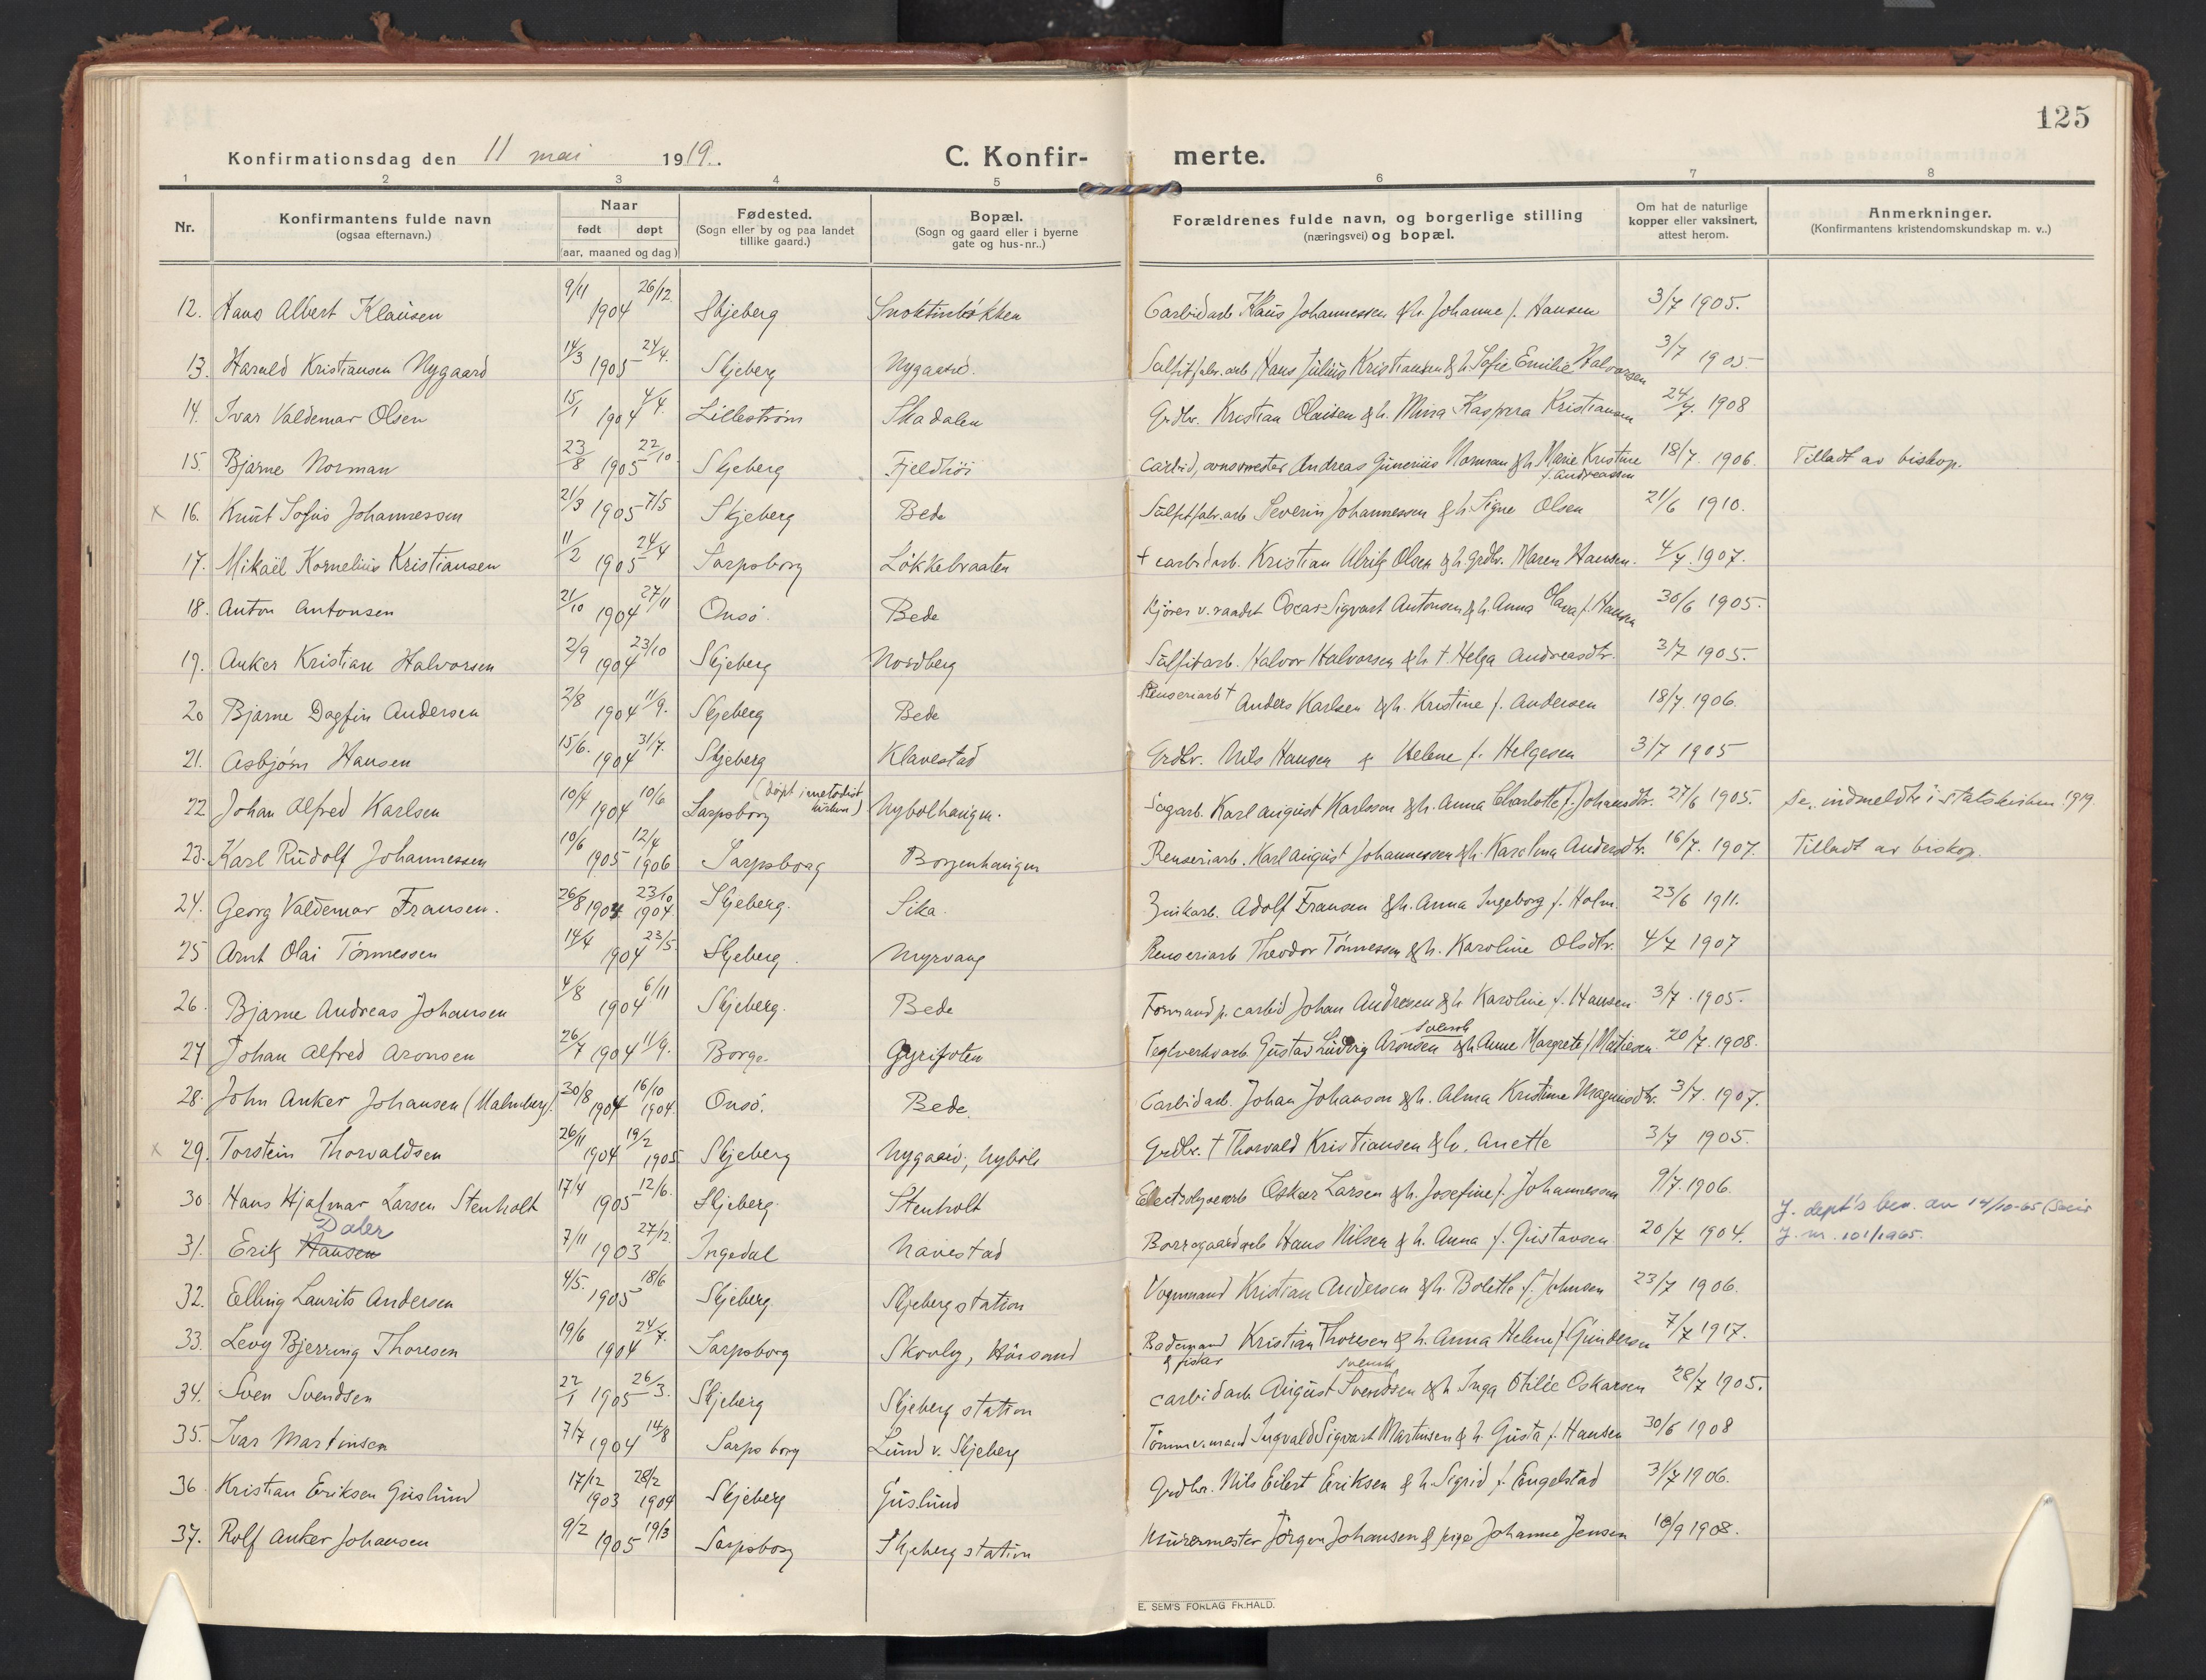 125
Konfirmationsdag den 11 mai 1919.
C. Konfir- merte.
1 2 3 4 5 6 7 8
Nr.
Konfirmantens fulde navn
(ogsaa efternavn.)
Naar
født døpt
(aar, maaned og dag)
Fødested.
(Sogn eller by og paa landet
tillike gaard.)
Bopæl.
(Sogn og gaard eller i byerne
gate og hus-nr..)
Forældrenes fulde navn, og borgerlige stilling
(næringsvei) og bopæl.
Om hat de naturlige
kopper eller vaksinert,
attest herom.
Anmerkninger.
(Konfirmantens kristendomskundskap m. v..)
12. Hans Albert Klausen 9/11 1904 26/12 Skjeberg Carbidarb Klaus Johannessen & h. Johanne f. Hansen 3/7 1905.
13. Harald Kristiansen Nygaard 14/3 1905 24/4. Skjeberg Nygaard. Sulfitfabr. arb Hans Julius Kristiansen & h Sofie Emilie Halvorsen 3/7 1905
14. Ivar Valdemar Olsen 15/1 1904 4/4. Lilleström Skadalen Grdbr. Kristian Olaisen & h. Mina Kaspara Kristiansen 24/7. 1908
15. Bjarne Norman 23/8 1905 22/10 Skjeberg Fjeldhöi Carbid, ovnsmester Andreas Gunerius Norman & h Marie Kristine f. Andreassen 18/7. 1906. Tilladt av biskop.
x 16. Knut Sofus Johannessen 21/3 1905 7/5 Skjeberg Bede Sulfitfabr. arb Severin Johannessen & h Signe Olsen 21/6 1910.
17. Mikael Kornelius Kristiansen 11/2 1905 24/4 Sarpsborg Lökkebraaten † carbidarb. Kristian Ulrik Olsen & h. grdbr. Maren Hansen. 4/7. 1907.
18. Anton Antonsen 21/10 1904 27/11 Onsö. Bede Kjörer v. vaadt Oscar Sigvart Antonsen & h. Anna Olava f. Hansen 30/6 1905.
19. Anker Kristian Halvorsen 2/9 1904 23/10 Skjeberg Nordberg Sulfitarb. Halvor Halvorsen & h. † Helga Andreasdtr. 3/7 1905.
20 Bjarne Dagfin Andersen 2/8 1904 11/9. Skjeberg Bede Renseriarb † Anders Karlsen & h. Kristine f. Andersen 18/7. 1906.
21. Asbjörn Hansen 15/6. 1904 31/7. Skjeberg Klavestad Grdbr. Nils Hansen & Helene f. Helgesen 3/7 1905
22 Johan Alfred Karlsen 10/4 1904 10/6 Sarpsborg (döpt i metodistkirken) Nybolhaugen. Sagarb. Karl August Karlsson & h. Anna Charlotte f. Johansdtr. 27/6 1905. se. indmeldt i statskirken 1919.
23. Karl Rudolf Johannessen 10/6 1905 12/4 1906 Sarpsborg Borgenhaugen Renseriarb. Karl August Johannessen & h. Karolina Andersdtr. 16/7. 1907. Tilladt av biskop.
24. Georg Valdemar Fransen. 26/8 1904 23/10 1904. Skjeberg. Sika. Zinkarb. Adolf Fransen & h. Anna Ingeborg f. Holm. 23/6 1911.
25 Arnt Olai Tönnessen 14/4 1904 23/5. Skjeberg. Myrvang Renseriarb Theodor Tönnessen & h. Karoline Olsdtr. 4/7 1907
26. Bjarne Andreas Johansen 4/8 1904 6/11 Skjeberg. Bede Formand p. carbid Johan Andresen & h Karoline f. Hansen 3/7. 1905.
27 Johan Alfred Aronsen 26/7 1904 11/9. Borge. Gyrifoten Teglverksarb. Gustav Ludvig Aronsen svensk & h Anne Margrete f Matiesen. 20/7. 1908.
28. John Anker Johansen (Malmberg). 30/8 1904 16/10 1904. Onsö. Bede. Carbidarb. Johan Johanson & h. Alma Kristine Magnusdtr. 3/7. 1907.
x 29. Torstein Thorvaldsen 26/11 1904 19/2 1905 Skjeberg Nygaard, Nyböle Grdbr. † Thorvald Kristiansen & h. Anette 3/7 1905.
30. Hans Hjalmar Larsen Stenholt 17/4 1905 12/6. Skjeberg. Stenholt Oskar Larsen & h. Josefine f. Johannessen 9/7. 1906.
31. Erik Hansen Daler 7/11 1903 27/12. Ingedal Navestad Borregaardarb Hans Nilsen & h. Anna f. Gustavsen. 20/7 1904. J. dept's bev. av 14/10-65
J. nr. 101/1965.
32. Elling Laurits Andersen 4/5. 1905 18/6 Skjeberg. Skjeberg station Vognmand Kristian Andersen & h. Bolette f. Johnsen 23/7 1906.
33. Levy Bjerring Thoresen 19/6 1904 24/7. Sarpsborg Skovly, Höisand Bademand & fisker Kristian Thoresen & h. Anna Helene f Gundersen 7/7 1917.
34. Sven Svendsen 22/1 1905 26/3. Skjeberg Skjeberg station carbidarb August Svendsen svensk & h Inga Otilie Oskarsen 28/7 1905.
35. Ivar Martinsen 7/7 1904 14/8 Sarpsborg Lund v. Skjeberg Tömmermand Ingvald Sigvart Martinsen & h. Gusta f. Hansen 30/6 1908
36. Kristian Eriksen Guslund 17/12 1903 28/2 1904 Skjeberg Guslund Grdbr. Nils Eilert Eriksen & h. Sigrid f. Engelstad 3/7 1906.
37. Rolf Anker Johansen 9/2 1905 19/3 Sarpsborg Skjeberg station Murermester † Jörgen Johansen & pige Johanne Jensen 18/9 1908.
E. SEM'S FORLAG FR.HALD.